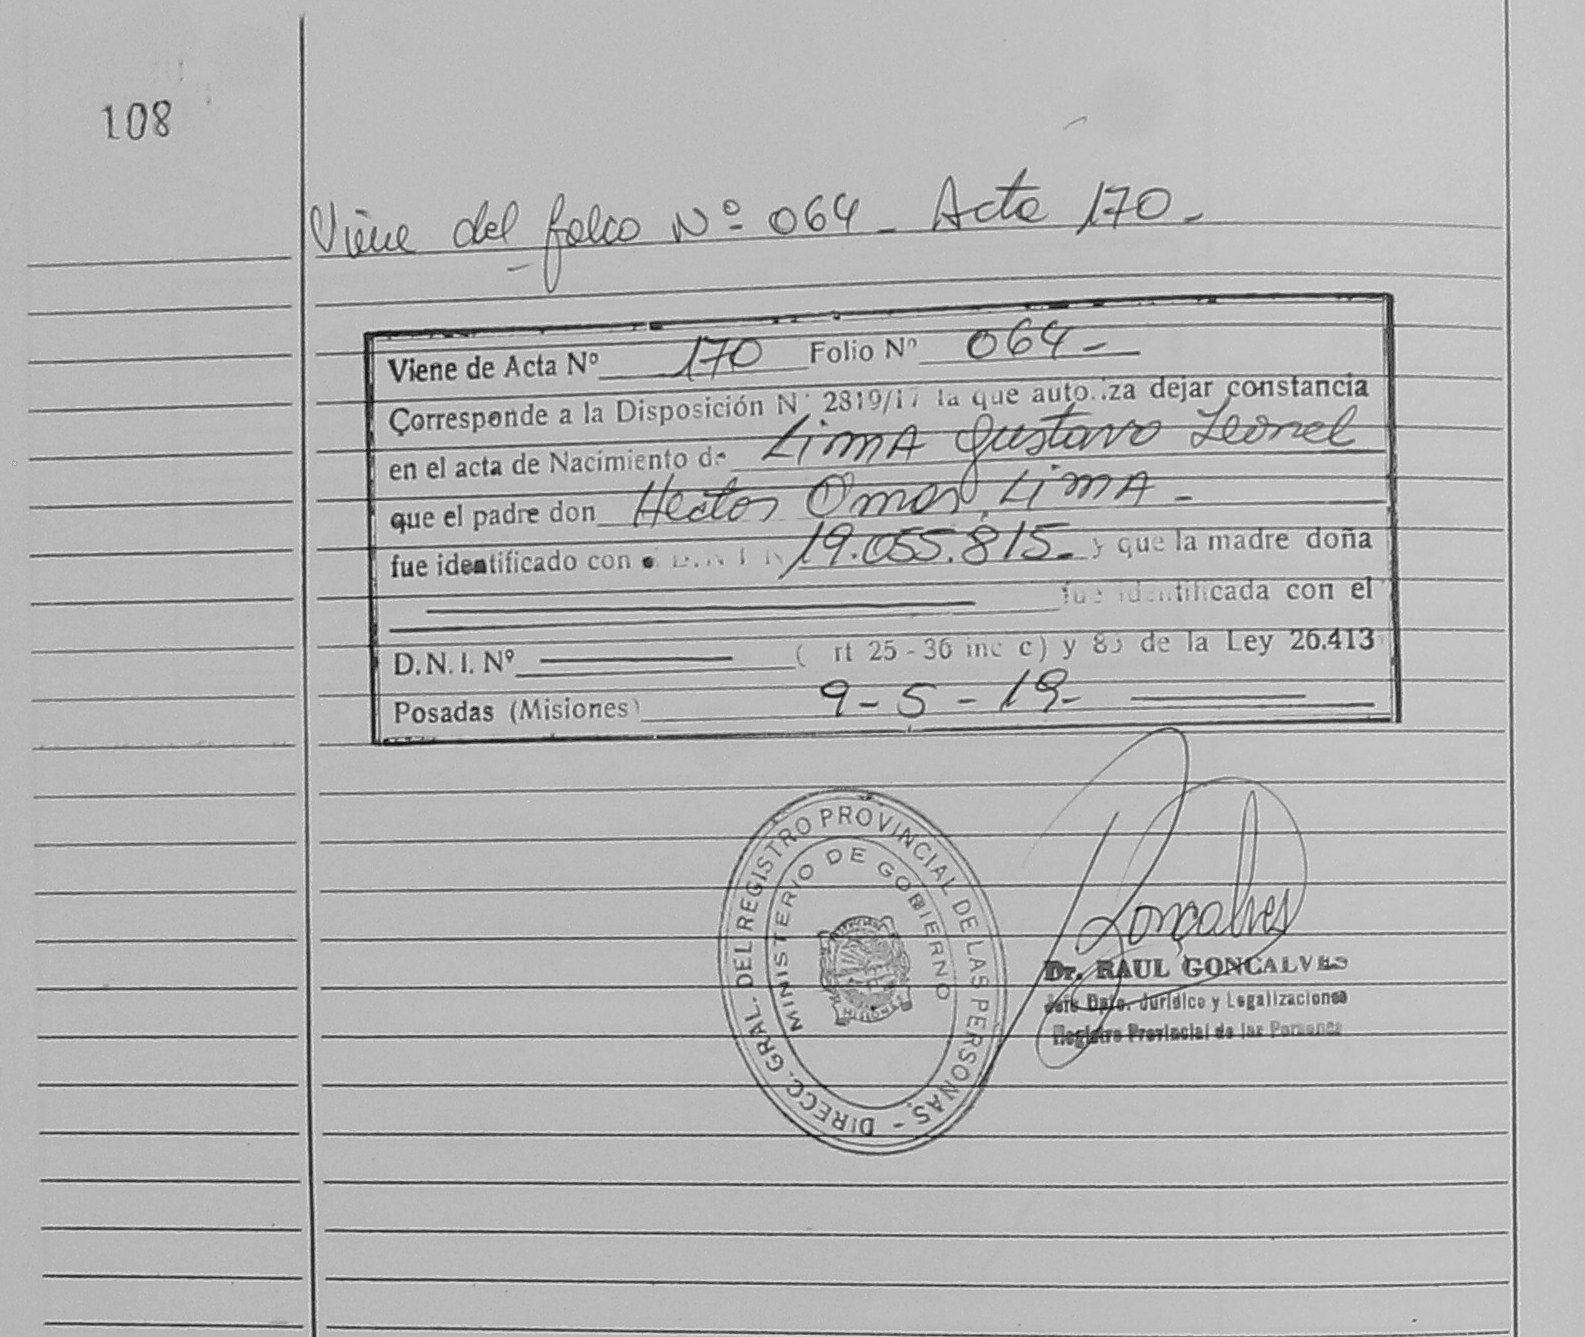 108
Viene del folio Nº 064 - Acta 170 -
Viene de Acta Nº 170 Folio Nº 064 -
Corresponde a la Disposición Nº 2819/17 la que autoriza dejar constancia
en el acta de Nacimiento de LimA Gustavo Leonel
que el padre don Hector Omar LimA -
fue identificado con el D.N.I. Nº 19.055.815 - y que la madre doña
fue identificada con el
D.N.I. Nº ( rt 25 - 36 inc c) y 85 de la Ley 26.413
Posadas (Misiones) 9 - 5 - 19 -
DIRECC. GRAL. DEL REGISTRO PROVINCIAL DE LAS PERSONAS. -
MINISTERIO DE GOBIERNO
MISIONES
Gonçalves
Dr. RAUL GONCALVES
Jefe Dpto. Jurídico y Legalizaciones
Registro Provincial de las Personas